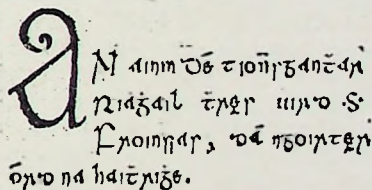 AN ainm Dé tionñsgantar
Riaġail ṫreas uird S.
Froinsias, dá ngoirtear
órd na haiṫriġe.